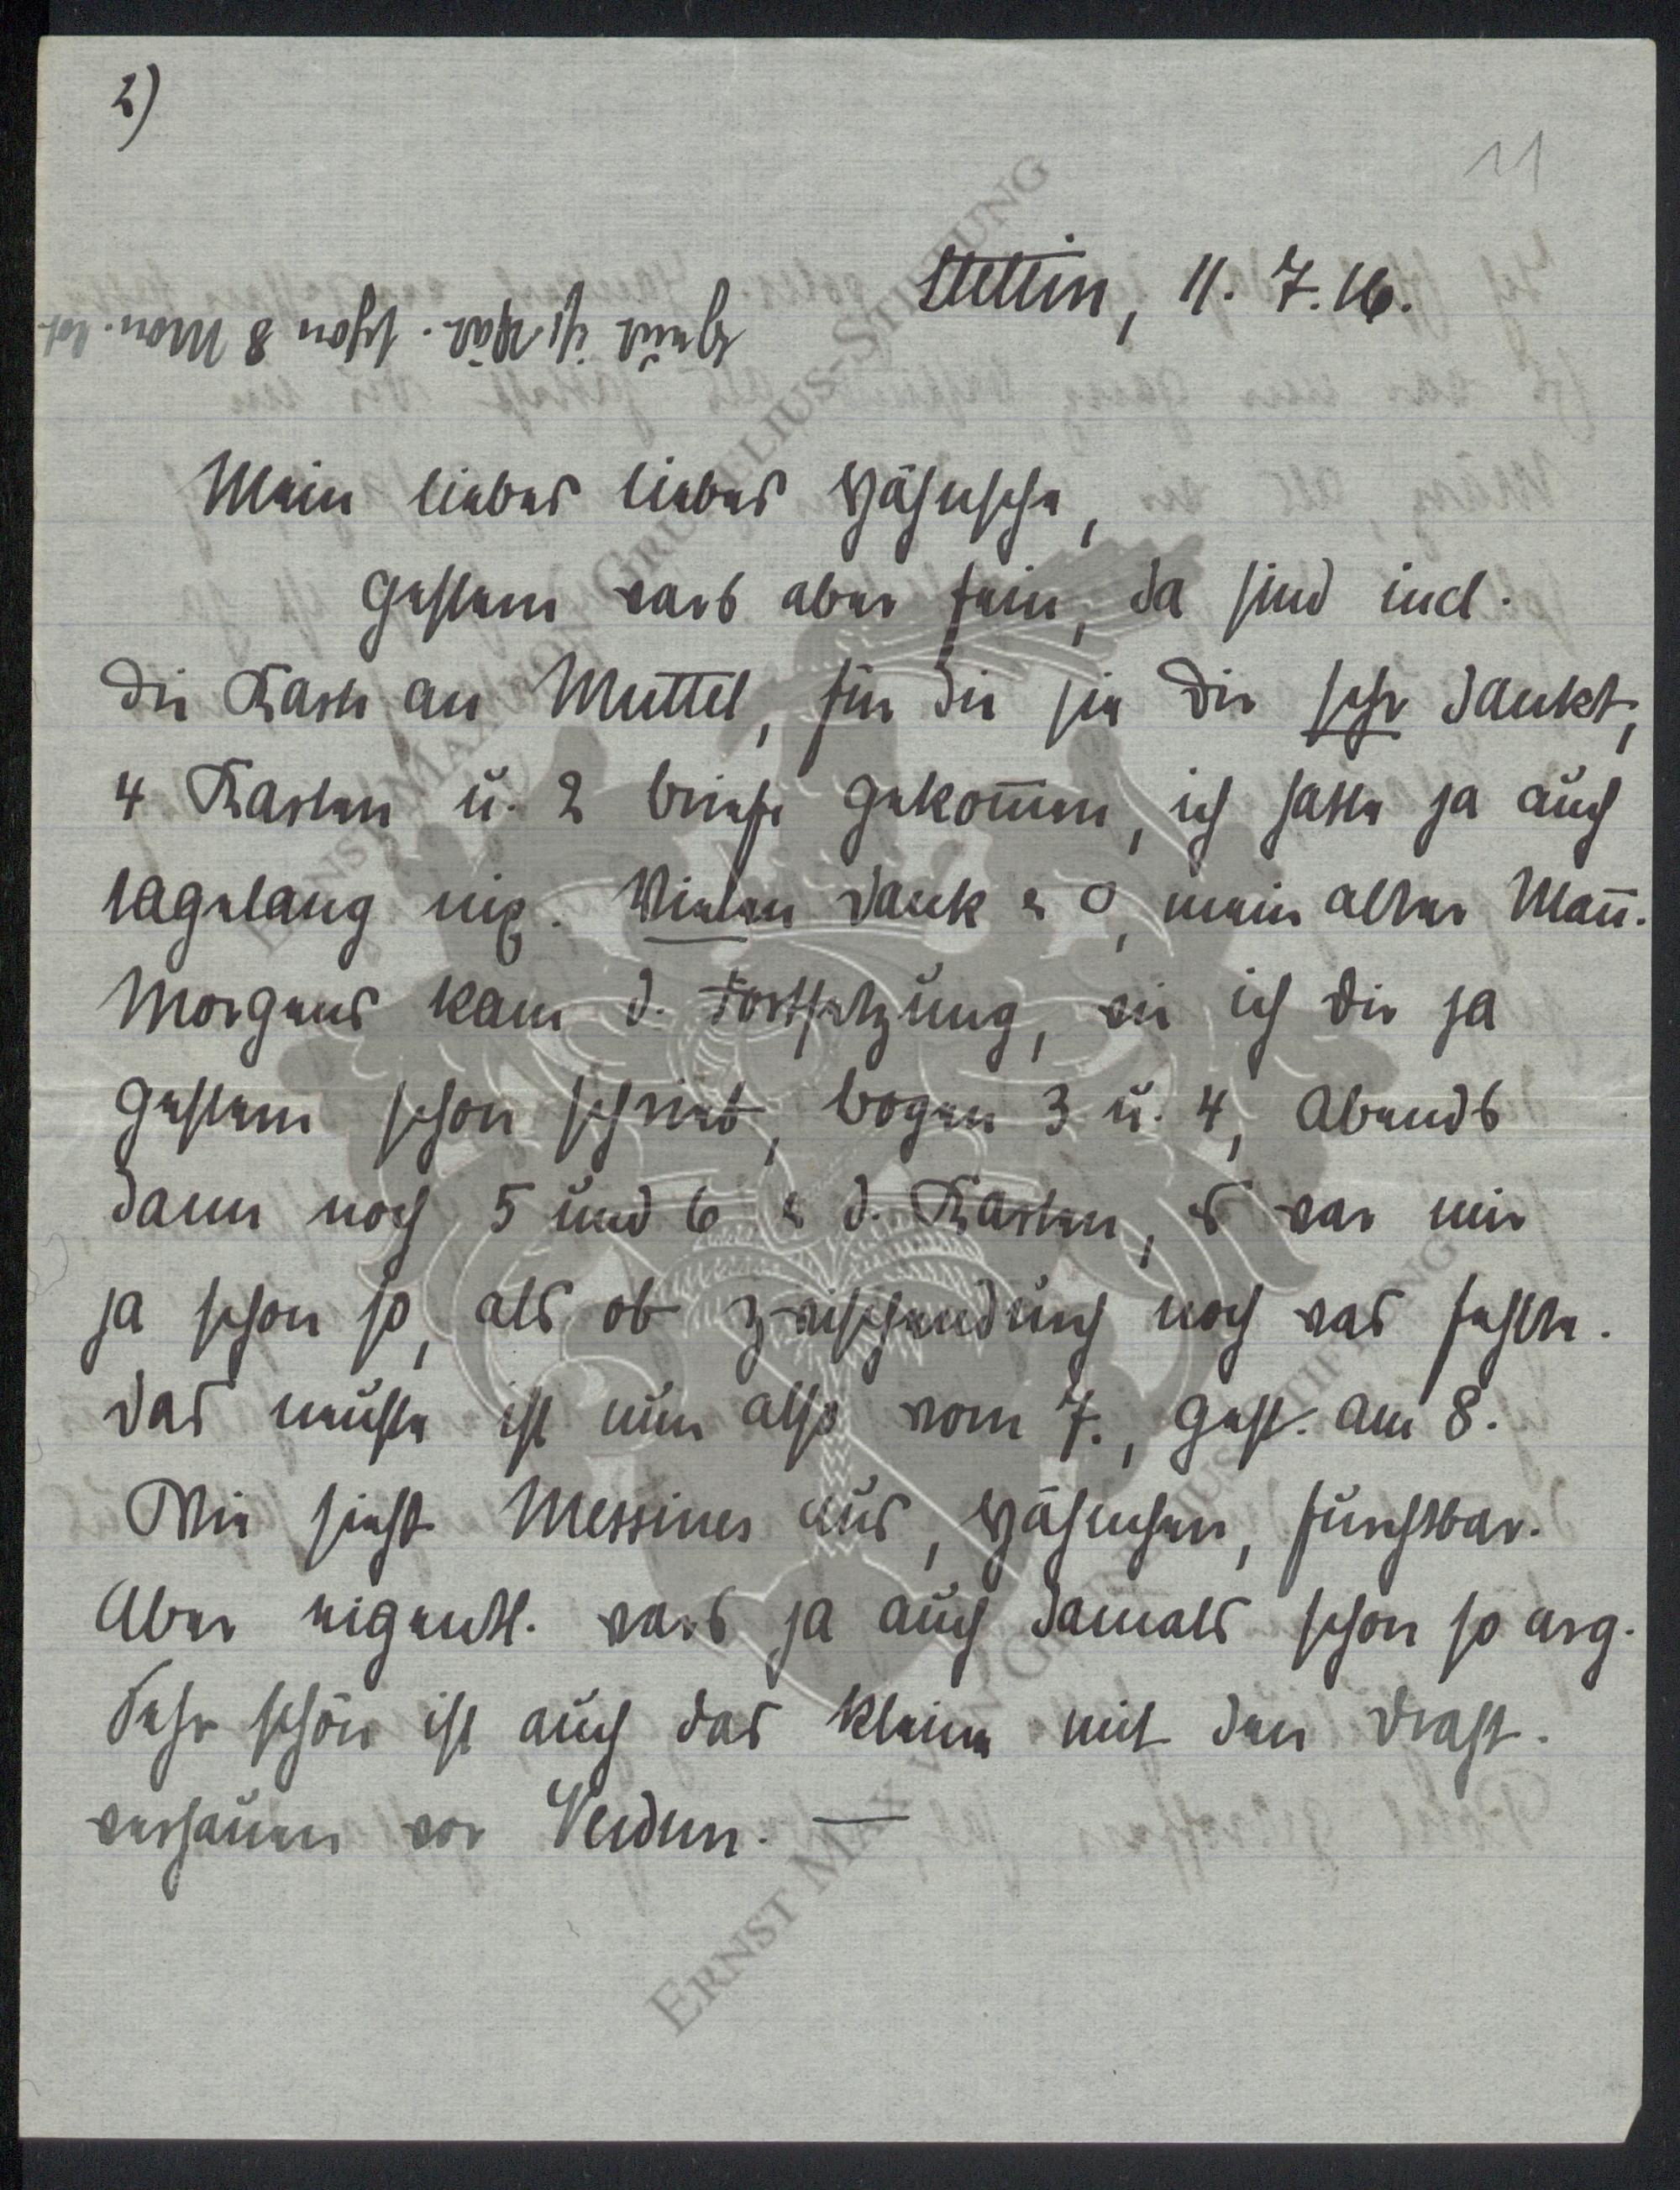 2)
11
Stettin, 11. 7. 16.
heut ist schon 8 Mon.
Mein liebes liebes Hähnsche,
Gestern wars aber fein, da sind incl.
die Karte an Muttel, für die sie Dir sehr dankt,
4 Karten u. 2 Briefe gekom̅en, ich hatte ja auch
tagelang nix. Vielen Dank & o, mein alter Man̅.
Morgens kam d. Fortsetzung, wie ich Dir ja
gestern schon schrieb, Bogen 3 u. 4, Abends
dann noch 5 und 6 & d. Karten, es war mir
ja schon so, als ob zwischendurch noch was fehlte.
Das neuste ist nun also vom 7., gest. am 8.
Wie sieht Messines aus, Hähnchen, furchtbar.
Aber eigentl. wars ja auch damals schon so arg.
Sehr schön ist auch das kleine mit den Draht-
verhauen vor Verdun. —
ERNST MAX VON GRUNELIUS-STIFTUNG
ERNST MAX VON GRUNELIUS-STIFTUNG